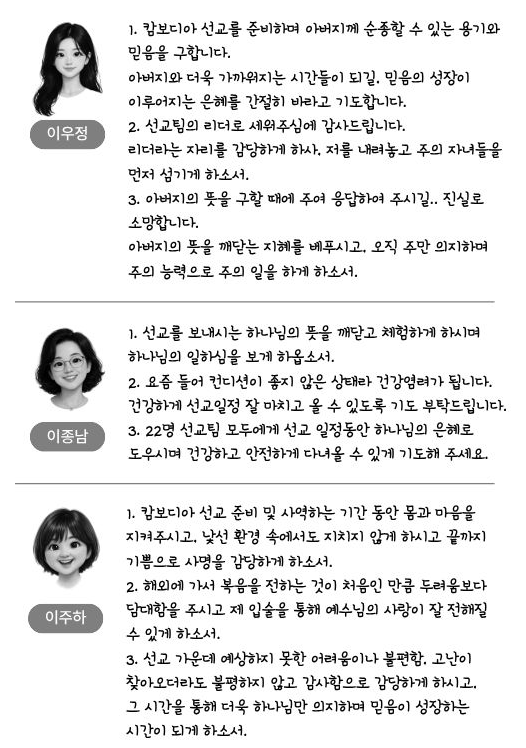 1. 캄보디아 선교를 준비하며 아버지께 순종할 수 있는 용기와
믿음을 구합니다.
아버지와 더욱 가까워지는 시간들이 되길, 믿음의 성장이
이루어지는 은혜를 간절히 바라고 기도합니다.
이우정
2. 선교팀의 리더로 세워주심에 감사드립니다.
리더라는 자리를 감당하게 하사, 저를 내려놓고 주의 자녀들을
먼저 섬기게 하소서.
3. 아버지의 뜻을 구할 때에 주여 응답하여 주시길.. 진실로
소망합니다.
아버지의 뜻을 깨닫는 지혜를 베푸시고, 오직 주만 의지하며
주의 능력으로 주의 일을 하게 하소서.
1. 선교를 보내시는 하나님의 뜻을 깨닫고 체험하게 하시며
하나님의 일하심을 보게 하옵소서.
2. 요즘 들어 컨디션이 좋지 않은 상태라 건강염려가 됩니다.
건강하게 선교일정 잘 마치고 올 수 있도록 기도 부탁드립니다.
이종남
3. 22명 선교팀 모두에게 선교 일정동안 하나님의 은혜로
도우시며 건강하고 안전하게 다녀올 수 있게 기도해 주세요.
1. 캄보디아 선교 준비 및 사역하는 기간 동안 몸과 마음을
지켜주시고, 낯선 환경 속에서도 지치지 않게 하시고 끝까지
기쁨으로 사명을 감당하게 하소서.
2. 해외에 가서 복음을 전하는 것이 처음인 만큼 두려움보다
담대함을 주시고 제 입술을 통해 예수님의 사랑이 잘 전해질
이주하
수 있게 하소서.
3. 선교 가운데 예상하지 못한 어려움이나 불편함, 고난이
찾아오더라도 불평하지 않고 감사함으로 감당하게 하시고,
그 시간을 통해 더욱 하나님만 의지하며 믿음이 성장하는
시간이 되게 하소서.